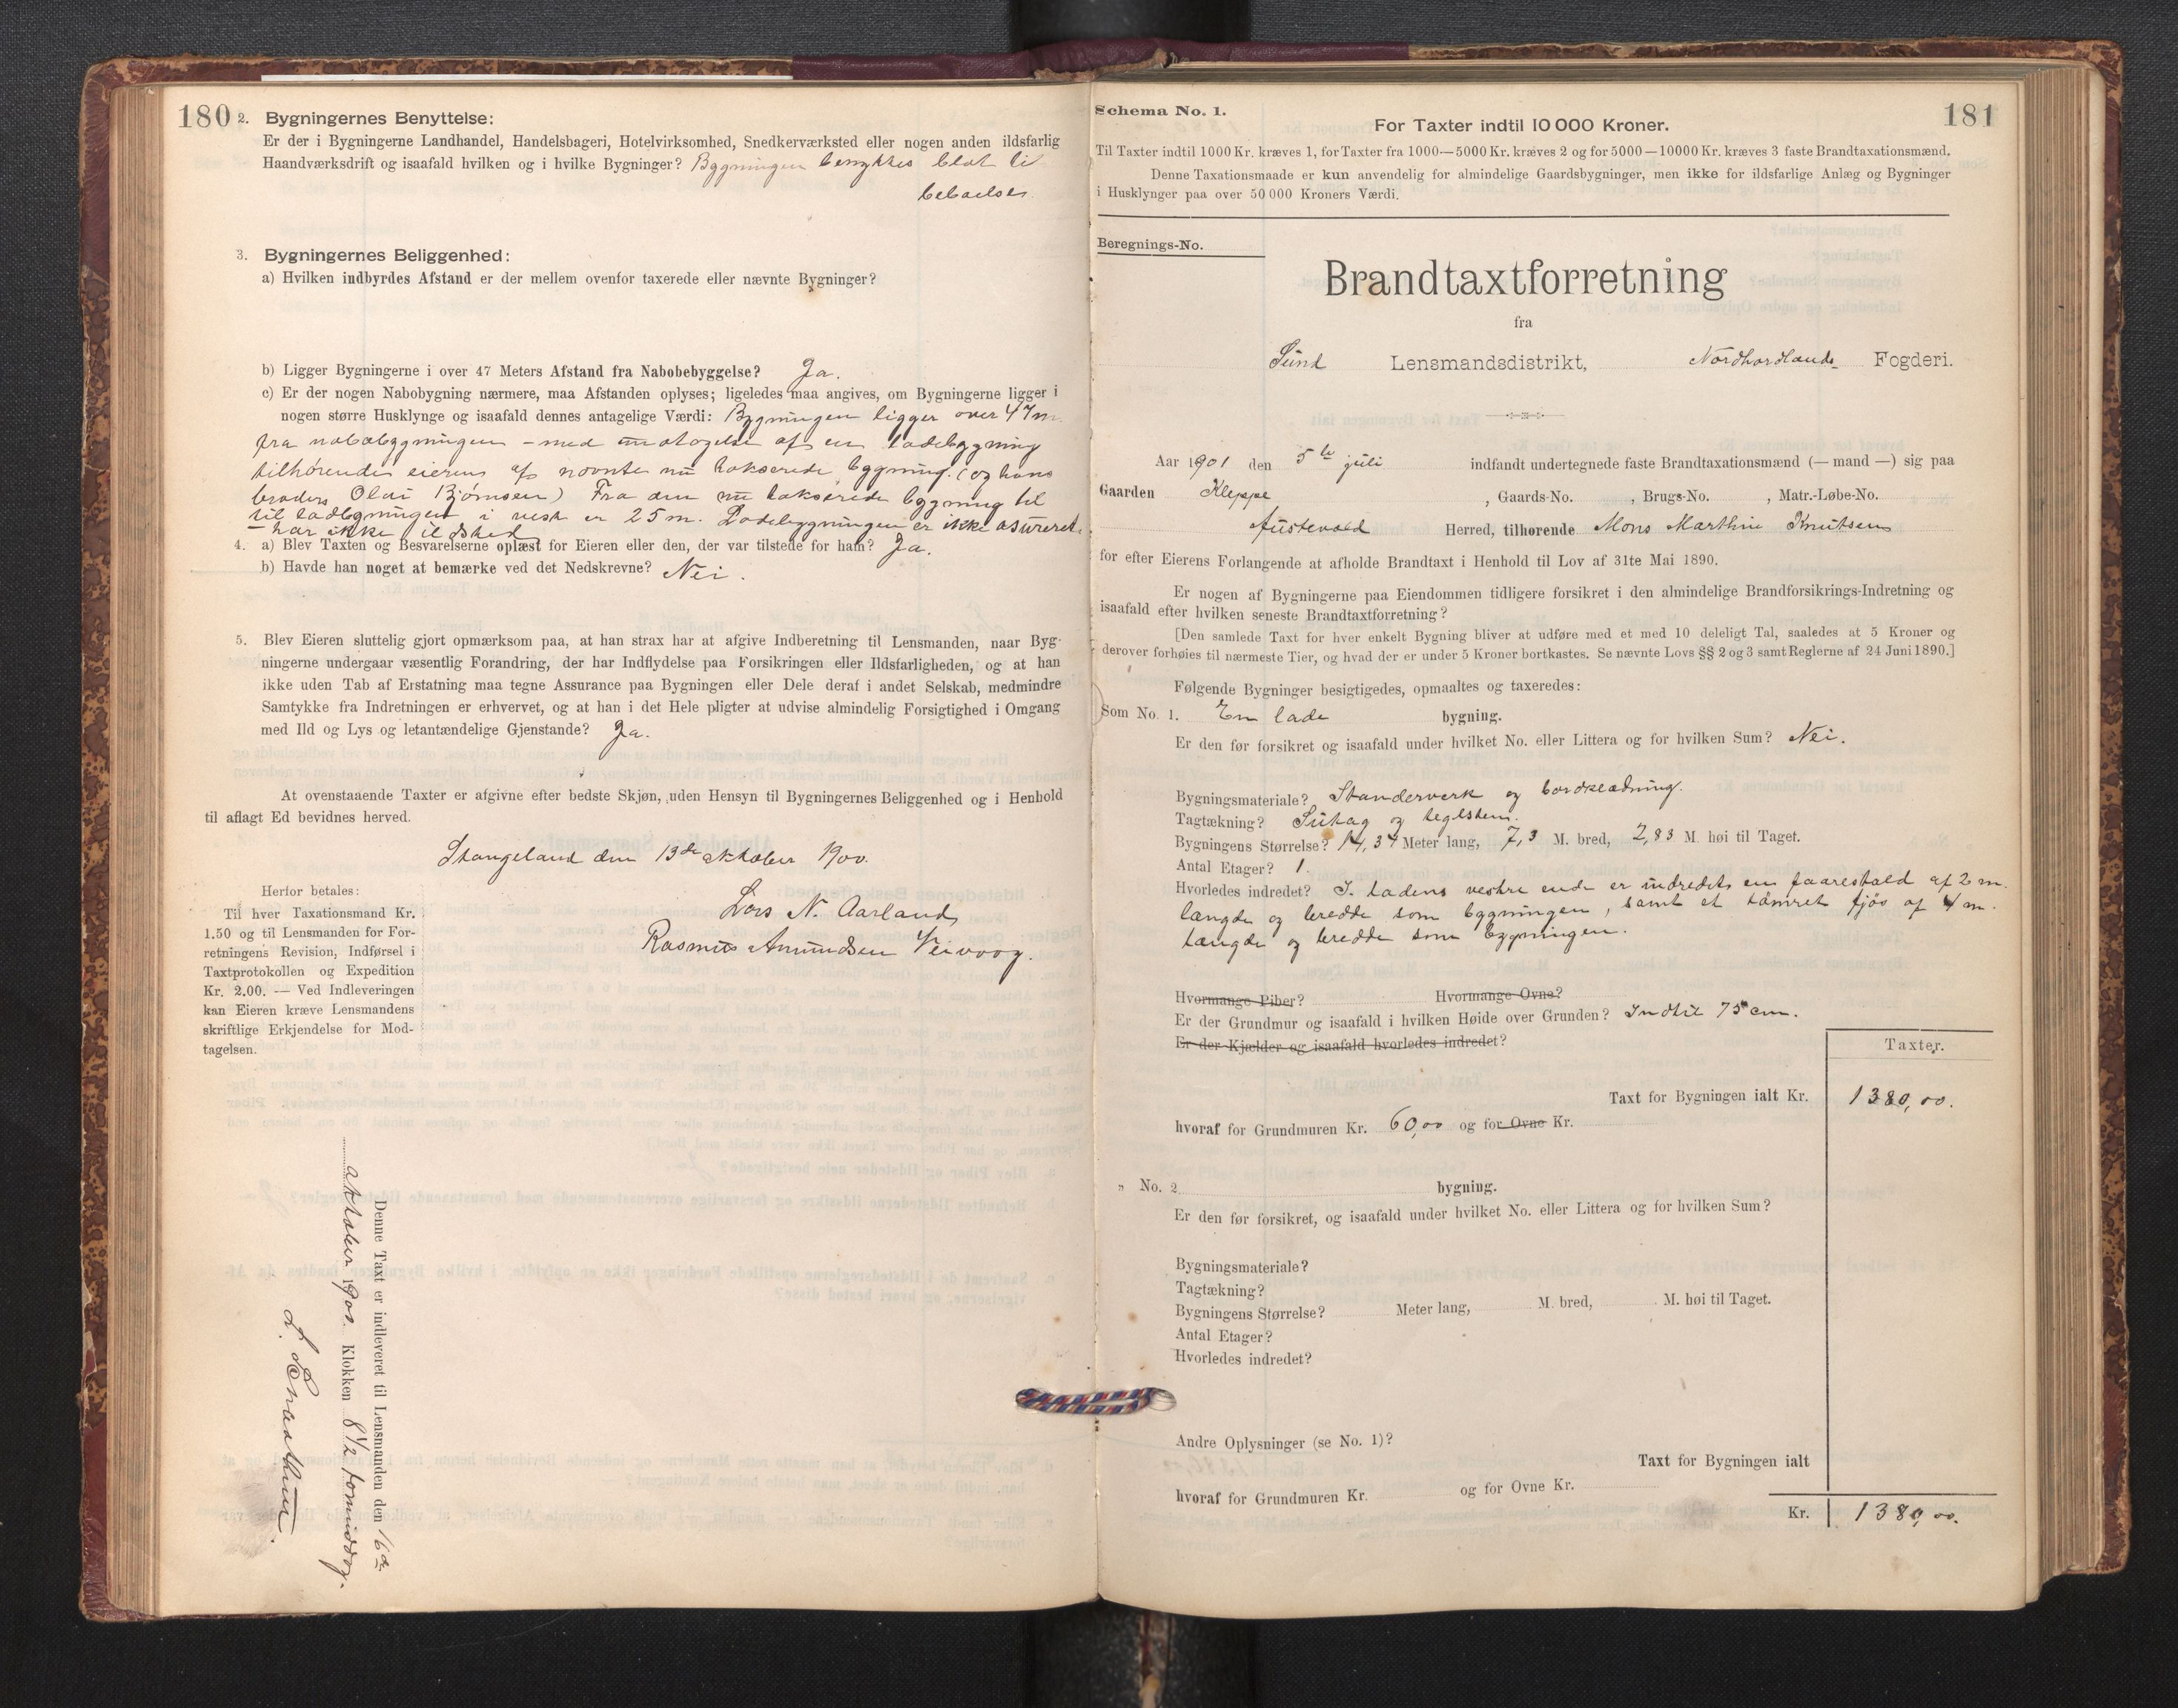 180
2. Bygningernes Benyttelse:
Er der i Bygningerne Landhandel, Handelsbageri, Hotelvirksomhed, Snedkerværksted eller nogen anden ildsfarlig
Haandværksdrift og isaafald hvilken og i hvilke Bygninger? Bygningen benyttes blot til
beboelse.
3. Bygningernes Beliggenhed:
a) Hvilken indbyrdes Afstand er der mellem ovenfor taxerede eller nævnte Bygninger?
b) Ligger Bygningerne i over 47 Meters Afstand fra Nabobebyggelse? Ja.
c) Er der nogen Nabobygning nærmere, maa Afstanden oplyses; ligeledes maa angives, om Bygningerne ligger i
nogen større Husklynge og isaafald dennes antagelige Værdi: Bygningen ligger over 47 m.
fra nabobygningen - med undtagelse af en ladebygning
tilhørende eieren af nævnte nu takserede bygning. (og hans
broders Olai Bjørnsen) Fra den nu takserede bygning til
til ladbygningen i vest er 25 m. Ladebygningen er ikke asureret.
- har ikke ildsted
4. a) Blev Taxten og Besvarelserne oplæst for Eieren eller den, der var tilstede for ham? Ja.
b) Havde han noget at bemærke ved det Nedskrevne? Nei.
5. Blev Eieren sluttelig gjort opmærksom paa, at han strax har at afgive Indberetning til Lensmanden, naar Byg-
ningerne undergaar væsentlig Forandring, der har Indflydelse paa Forsikringen eller Ildsfarligheden, og at han
ikke uden Tab af Erstatning maa tegne Assurance paa Bygningen eller Dele deraf i andet Selskab, medmindre
Samtykke fra Indretningen er erhvervet, og at han i det Hele pligter at udvise almindelig Forsigtighed i Omgang
med Ild og Lys og letantændelige Gjenstande? Ja.
At ovenstaaende Taxter er afgivne efter bedste Skjøn, uden Hensyn til Bygningernes Beliggenhed og i Henhold
til aflagt Ed bevidnes herved.
Stangeland den 13de oktober 1900.
Lars N. Aarland
Rasmus Amundsen Veivaag.
Herfor betales:
Til hver Taxationsmand Kr.
1.50 og til Lensmanden for For-
retningens Revision, Indførsel i
Taxtprotokollen og Expedition
Kr. 2.00. — Ved Indleveringen
kan Eieren kræve Lensmandens
skriftlige Erkjendelse for Mod-
tagelsen.
Denne Taxt er indleveret til Lensmanden den 16de
oktober 1900. Klokken 8 1/2 formiddag.
181
Schema No. 1.
For Taxter indtil 10 000 Kroner.
Til Taxter indtil 1000 Kr. kræves 1, for Taxter fra 1000—5000 Kr. kræves 2 og for 5000—10000 Kr. kræves 3 faste Brandtaxationsmænd.
Denne Taxationsmaade er kun anvendelig for almindelige Gaardsbygninger, men ikke for ildsfarlige Anlæg og Bygninger
i Husklynger paa over 50 000 Kroners Værdi.
Beregnings-No.
Brandtaxtforretning
fra
Sund Lensmandsdistrikt, Nordhordlands Fogderi.
Aar 1901 den 5te juli indfandt undertegnede faste Brandtaxationsmænd (— mand —) sig paa
Gaarden Kleppe, Gaards-No. , Brugs-No. , Matr.-Løbe-No.
Austevold Herred, tilhørende Mons Marthin Knutsen
for efter Eierens Forlangende at afholde Brandtaxt i Henhold til Lov af 31te Mai 1890.
Er nogen af Bygningerne paa Eiendommen tidligere forsikret i den almindelige Brandforsikrings-Indretning og
isaafald efter hvilken seneste Brandtaxtforretning?
[Den samlede Taxt for hver enkelt Bygning bliver at udføre med et med 10 deleligt Tal, saaledes at 5 Kroner og
derover forhøies til nærmeste Tier, og hvad der er under 5 Kroner bortkastes. Se nævnte Lovs §§ 2 og 3 samt Reglerne af 24 Juni 1890.]
Følgende Bygninger besigtigedes, opmaaltes og taxeredes:
Som No. 1. En lade bygning.
Er den før forsikret og isaafald under hvilket No. eller Littera og for hvilken Sum? Nei.
Bygningsmateriale? Standerverk og bordklædning.
Tagtækning? Sutag og teglsten.
Bygningens Størrelse? 14,34 Meter lang, 7,3 M. bred, 2,83 M. høi til Taget.
Antal Etager? 1.
Hvorledes indredet? I ladens vestre ende er indredets en faarestald af 2 m.
længde og bredde som bygningen, samt et tømret fjøs af 4 m.
længde og bredde som bygningen.
Hvormange Piber? Hvormange Ovne?
Er der Grundmur og isaafald i hvilken Høide over Grunden? Indtil 75 cm.
Er der Kjælder og isaafald hvorledes indredet?
Taxter.
Taxt for Bygningen ialt Kr. 1380,00.
hvoraf for Grundmuren Kr. 60,00 og for Ovne Kr.
" No. 2 bygning.
Er den før forsikret, og isaafald under hvilket No. eller Littera og for hvilken Sum?
Bygningsmateriale?
Tagtækning?
Bygningens Størrelse? Meter lang, M. bred, M. høi til Taget.
Antal Etager?
Hvorledes indredet?
Andre Oplysninger (se No. 1)?
Taxt for Bygningen ialt
hvoraf for Grundmuren Kr. og for Ovne Kr.
Kr. 1380,00.